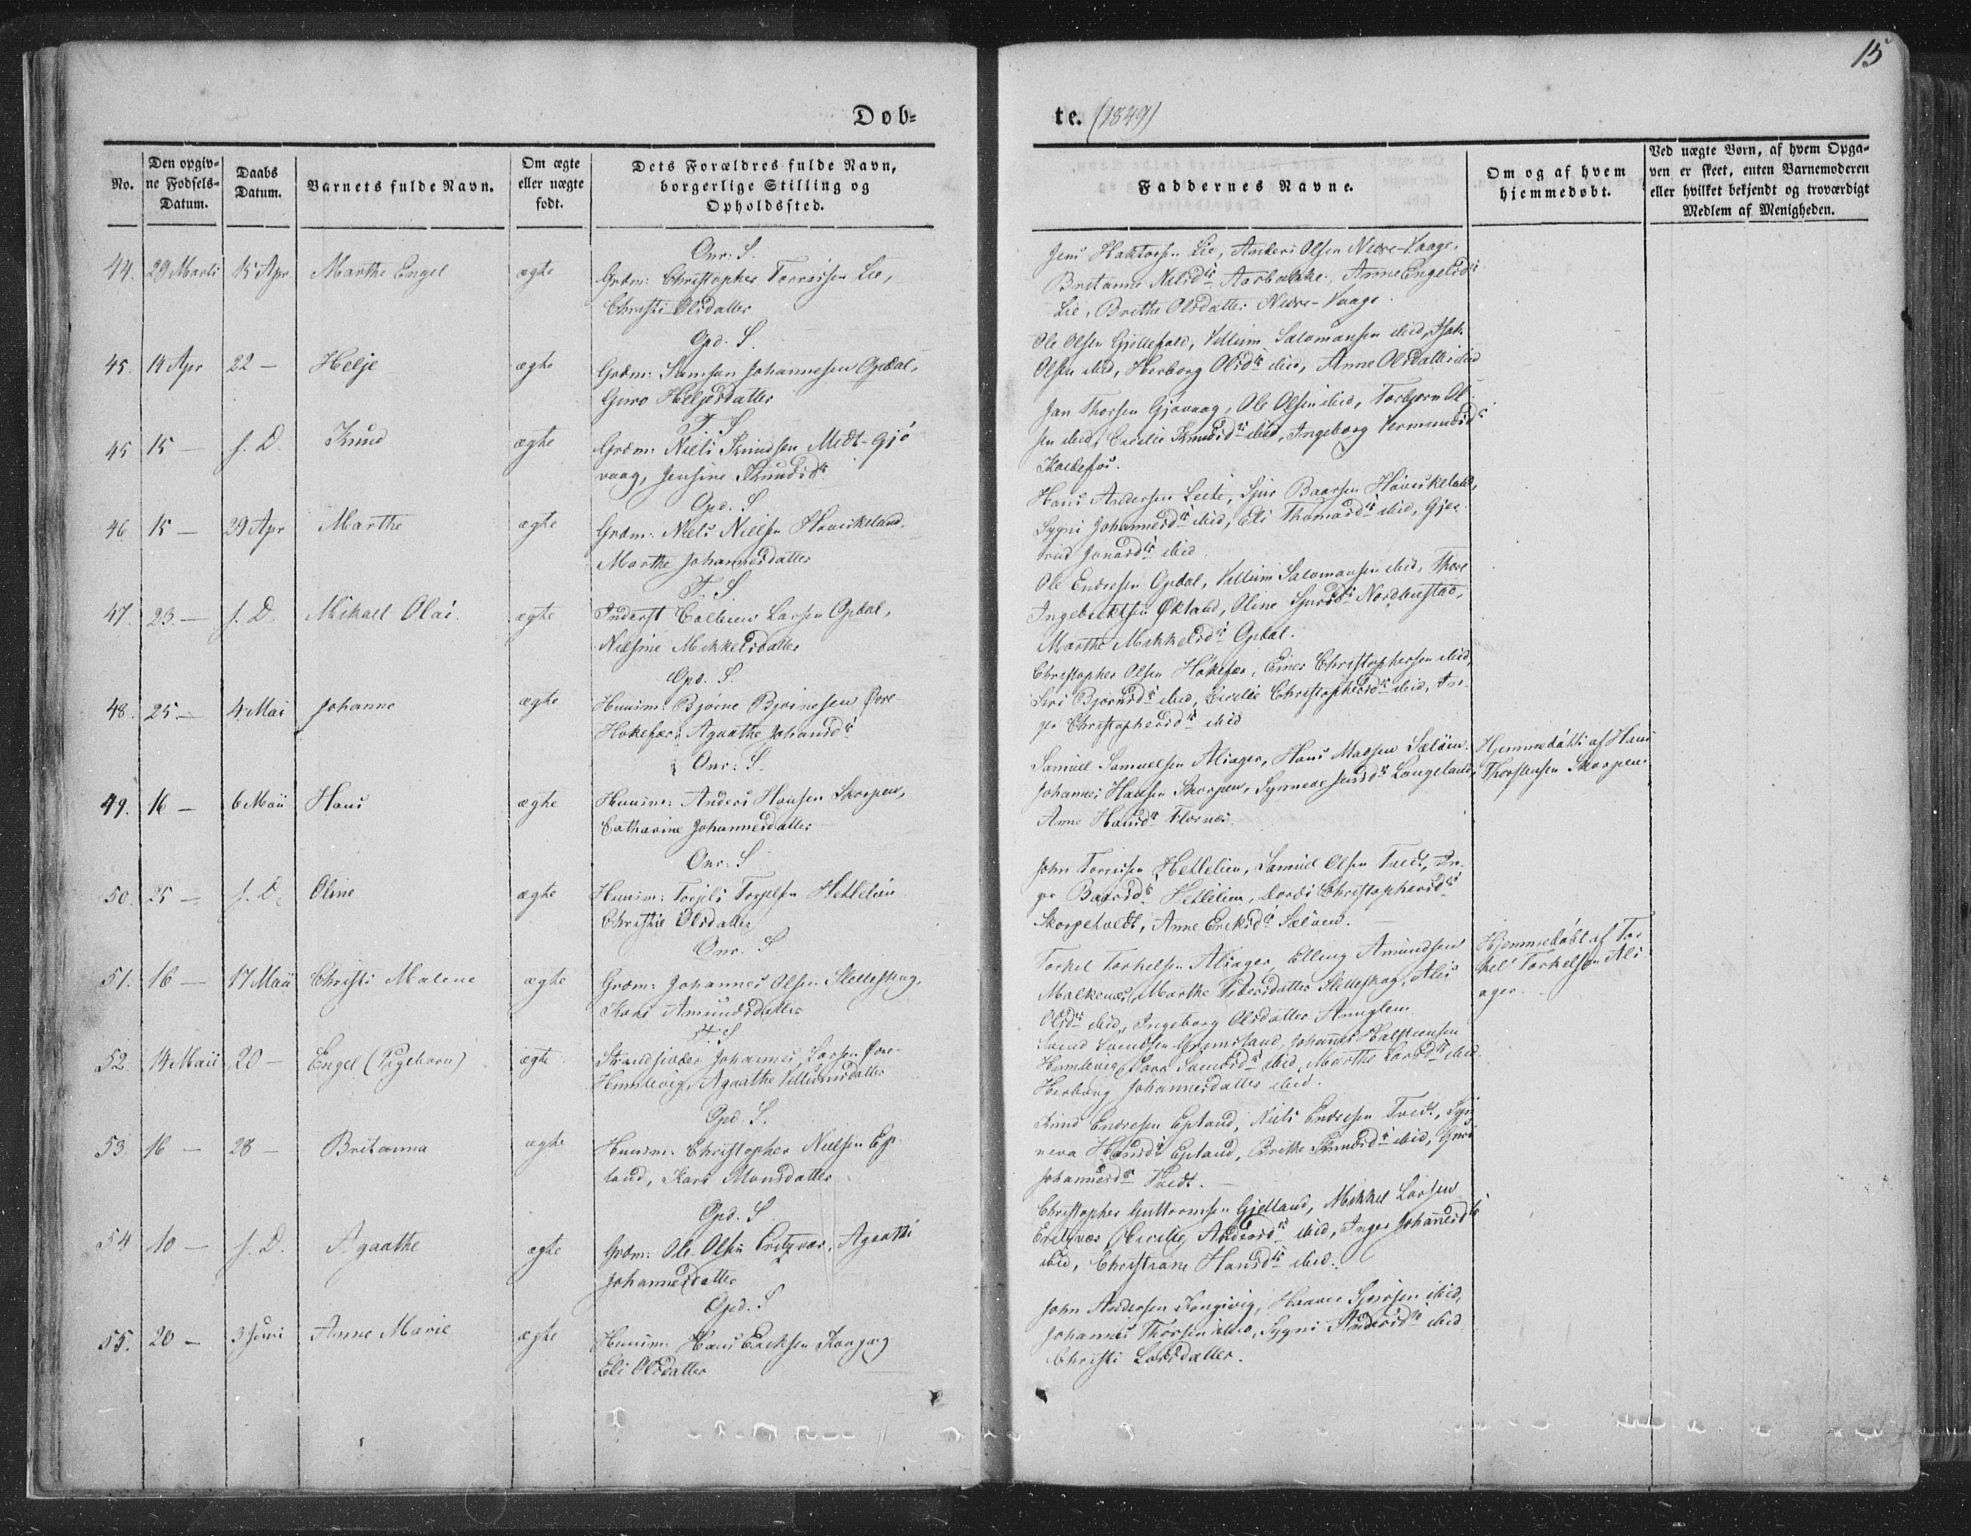 15
Døb-
te. (1849)
No.
Den opgiv-
ne Fødsels-
Datum.
Daabs
Datum.
Barnets fulde Navn.
Om ægte
eller uægte
født.
Dets Forældres fulde Navn,
borgerlige Stilling og
Opholdssted.
Faddernes Navne.
Om og af hvem
hjemmedøbt.
Ved uægte Børn, af hvem Opga-
ven er skeet, enten Barnemoderen
eller hvilket bekjendt og troværdigt
Medlem af Menigheden.
Onr. S.
44. 29 Marti 15 Apr Marthe Engel ægte Grdm: Christopher Torrisen Lie,
Christi Olsdatter
Jens Haktorsen Lie, Anders Olsen Nedre-Vaage,
Britanne Nilsdr Aarbakke, Anne Engelsdr
Lie, Brithe Olsdatter Nedre-Vaage.
Opd. S.
45. 14 Apr 22 — Helje ægte Grdm: Samson Johannesen Opdal,
Guro Heljesdatter
Ole Olsen Gjellefald, Villum Salomonsen ibid, Isak
Olsen ibid, Herborg Olsdr ibid, Anne Olsdatter ibid
T. S.
45 15 — s. D. Knud ægte Grdm: Niels Knudsen Midt-Gjø
vaag, Jensine Knudsdr
Jan Thorsen Gjøvaag, Ole Olsen ibid, Torbjørn Ol-
sen ibid, Cecilie Knudsdr ibid, Ingeborg Vermundsd
Koldefos.
Opd. S.
46. 15 — 29 Apr Marthe ægte Grdm: Niels Nielsen Haaviskeland,
Marthe Johannesdatter
Hans Andersen Leite, Sjur Baarsen Haaviskeland,
Sygni Johannesdr ibid, Eli Thomasdr ibid, Gjer
trud Jonasdr ibid.
T. S.
47. 23 — s. D. Mikael Olai. ægte Inderst Colbiens Larsen Opdal,
Nilsine Mikkelsdatter
Ole Endresen Opdal, Villum Salomonsen ibid, Thore
Ingebriktsen Økland, Oline Sjursdr Nordbustad,
Marthe Mikkelsdr Opdal.
Opd. S.
48. 25 — 4 Mai Johanne ægte Huusm: Bjørne Bjørnesen Øvre-
Hokefær, Agaathe Johansdr
Christopher Olsen Hokefær, Einer Christophersen ibid,
Siri Bjørnsdr ibid, Cecilie Christophersdr ibid, In-
ger Christophersdr ibid
Onr: S.
49. 16 — 6 Maii Hans ægte Huusm: Anders Hansen Skorpen,
Catharine Johannesdatter
Samuel Samuelsen Alsager, Hans Madsen Sæløen,
Johannes Hansen Skorpen, Synneve Jensdr Langeland,
Anne Hansdr Flornes.
Hjemmedøbt af Hans
Thorstensen Skorpen.
Onr: S
50. 25 — s. D. Oline ægte Huusm: Torjels Torjelsen Hetlelien
Christie Olsdatter
John Torrisen Hetlelien, Samuel Olsen Tvedt, In-
ger Baarsdr Hetlelien, Dordi Christophersdr
Skorgeholdt, Anne Eriksdr Sæløen.
Onr. S
51. 16 — 17 Maii Christi Malene ægte Grdm: Johannes Olsen Sletteskog,
Kari Amundsdatter
Torkel Torkelsen Alsager, Elling Amundsen
Malkenes, Marthe Pedersdatter Sletteskog, Alis
Olsdr ibid, Ingeborg Olsdatter Amuglem
Hjemmedøbt af Tor
kel Torkelsen Als
ager.
T. S
52. 14 Maii 20 — Engel (Pigebarn) ægte Strandsidder Johannes Larsen Øvre-
Humlevig, Agaathe Villumsdatter
Svend Svendsen Grimsland, Johannes Halsteensen
Humlevig, Sara Svendsdr ibid, Marthe Larsdr ibid,
Herborg Johannesdatter ibid.
Opd. S.
53. 16 — 28 — Britanna ægte Huusm: Christopher Nielsen Ep-
land, Kari Monsdatter
Knud Endresen Epland, Niels Endresen Tvedt, Syn
neva Hansdr Epland, Brithe Knudsdr ibid, Guri
Johannesdr Tvedt.
Opd. S
54 10 — s. D. Agaathe ægte Grdm: Ole Olsen Eritzvær, Agaathe
Johannesdatter
Christopher Guttormsen Gjelland, Mikkel Larsen
Eritzvær, Cecilie Andersdr ibid, Inger Johannesdr
ibid, Christiane Hansdr ibid.
Opd. S
55. 20 — 3 Juni Anne Marie ægte Huusm: Hans Eriksen Kongsvig
Eli Olsdatter
John Andersen Kongsvig, Haaver Sjursen ibid,
Johannes Thorsen ibid, Sygni Andersdr ibid
Christi Larsdatter.